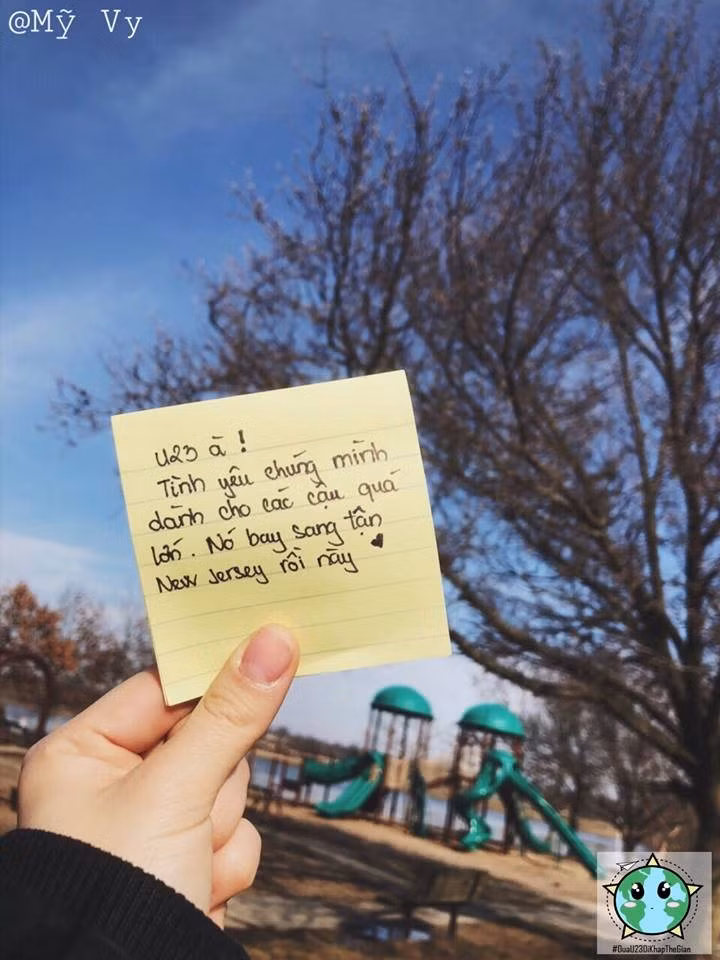 @Mỹ Vy
U23 à !
Tình yêu chúng mình
dành cho các cậu quá
lớn. Nó bay sang tận
New Jersey rồi này ♥
#DuaU23DiKhapTheGian